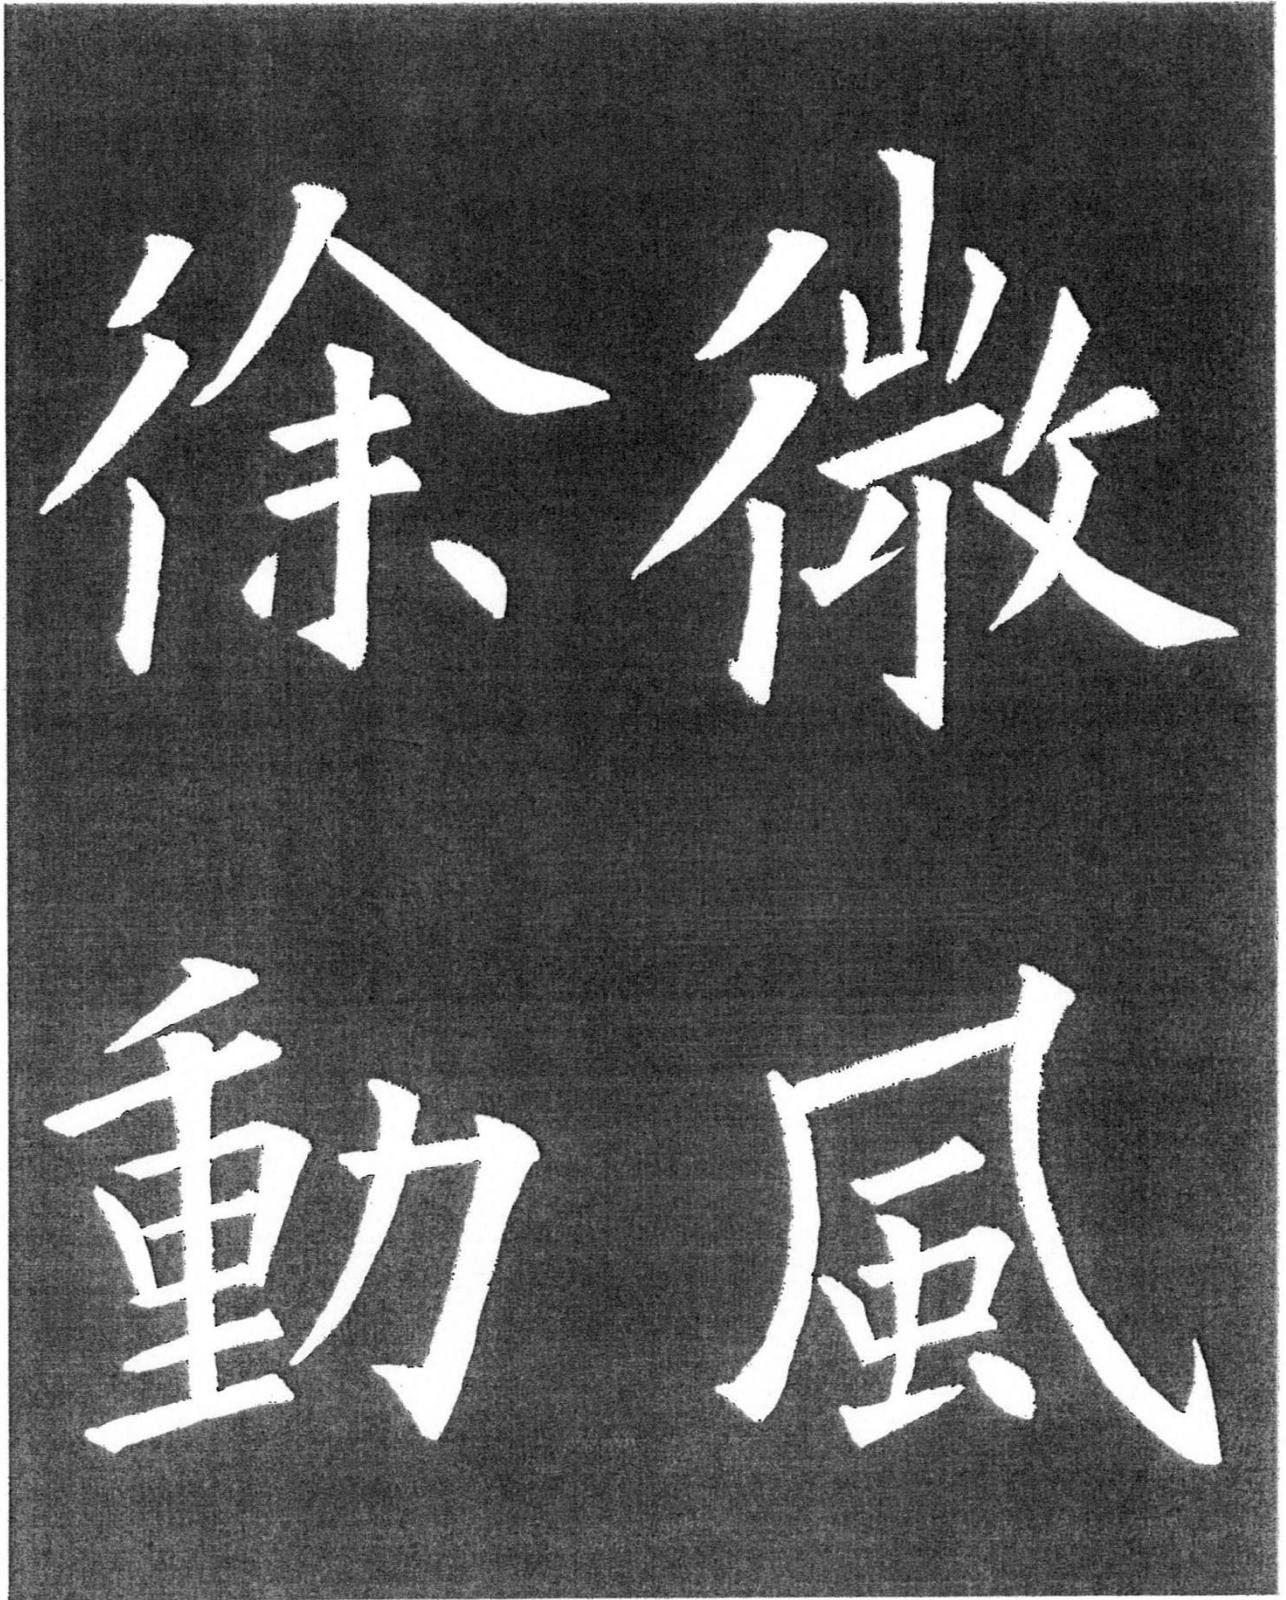 微風
徐動